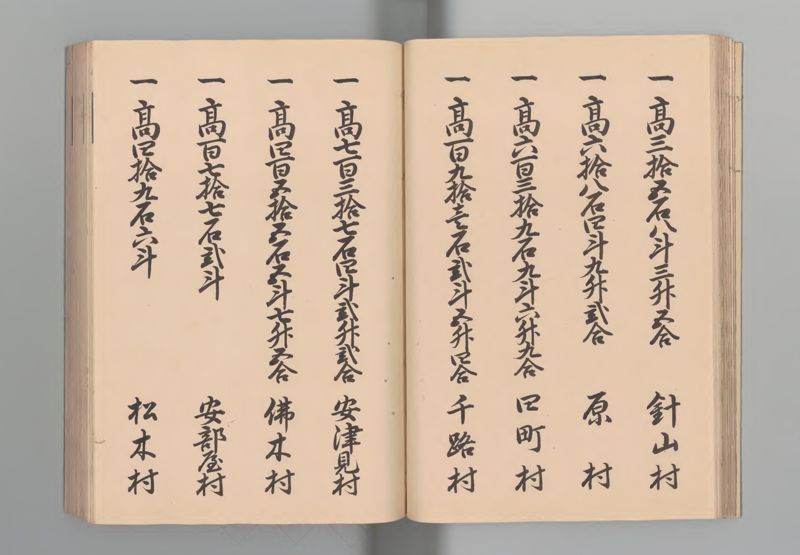 一高三拾五石八斗三升五合 針山村
一高六拾八石四斗九升弐合 原村
一高六百三拾九石九斗六升九合 四町村
一高百九拾壱石弐斗五升四合 千路村
一高七百三拾七石四斗弐升弐合 安津見村
一高四百五拾五石五斗七升五合 佛木村
一高百七拾七石弐斗 安部屋村
一高四拾九石六斗 松木村